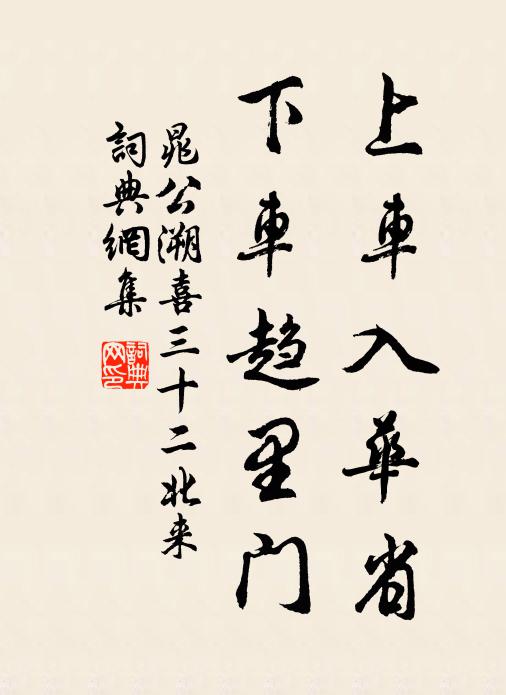 上車入華省
下車趨里門
晁公溯喜三十二北来
詞典網集
詞典网印